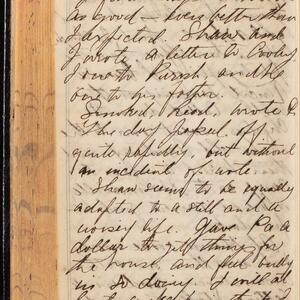 as good – even better than
I expected. Shaw and
I wrote a letter to Cooley
one to Parish, and
one to my father.
Smoked, read, wrote &c
The day passed off
quite rapidly, but without
an incident of note.
Shaw seems to be equally
adapted to a still and a
noisy life. Gave Pa a
dollar to get things in
the house, and feel bully
in so doing. I will all